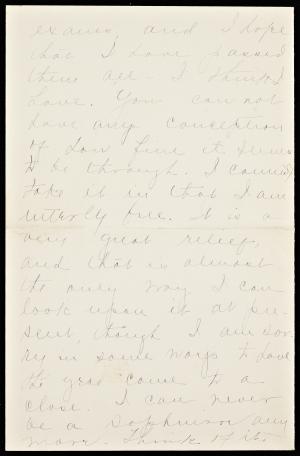 exams, and I hope
that I have passed
them all - I think I
have. You can not
have any conception
of how fine it seems
to be through. I cannot
take it in that I am
utterly free. It is a
very great relief,
and that is almost
the only way I can
look upon it at pre-
sent, though I am sor-
ry in some ways to have
the year come to a
close. I can never
be a sophmore any
more. Think of it.